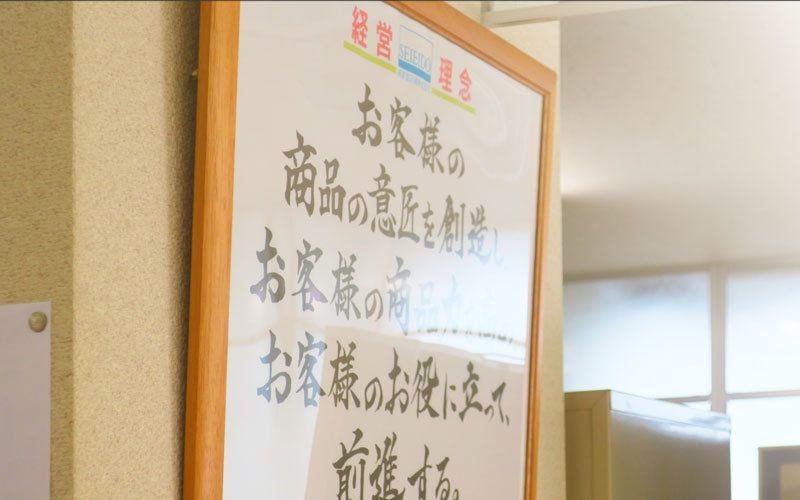 経営 SEIEIDO 理念
お客様の
商品の意匠を創造し、
お客様の商品力を高め、
お客様のお役に立って、
前進する。